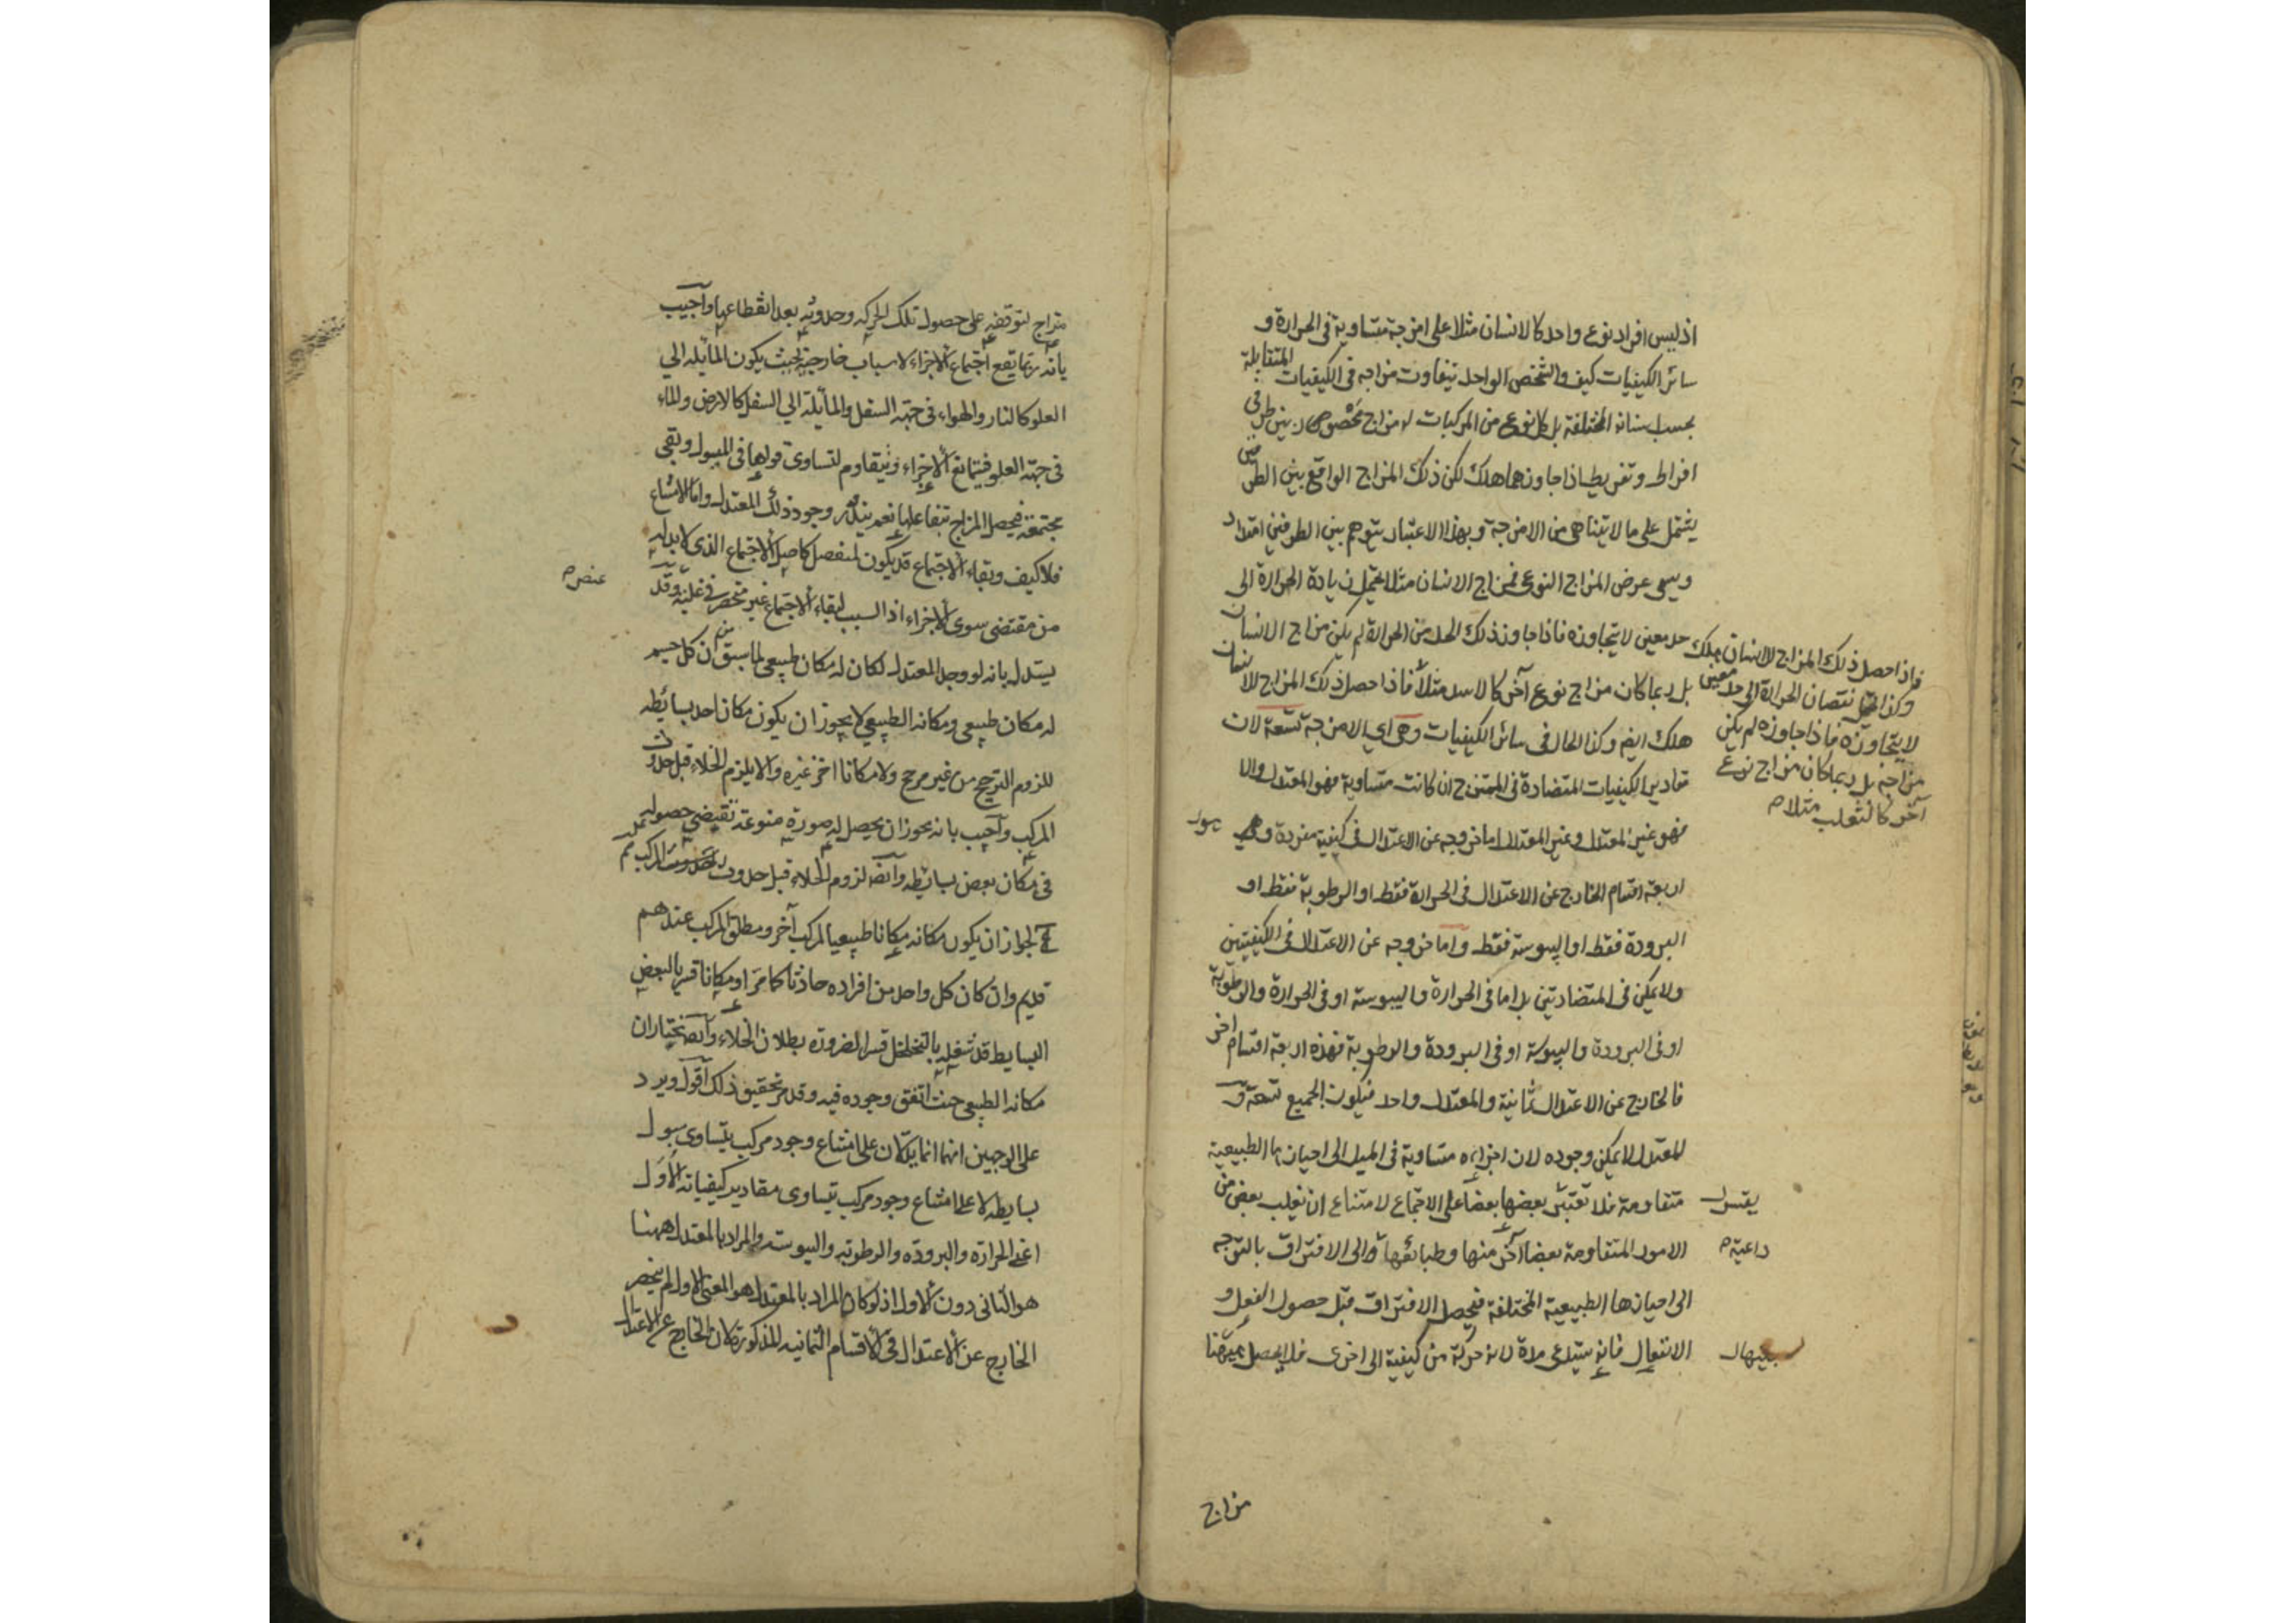 اذ ليس افراد نوع واحد كالانسان مثلا على امزجة متساوية فى الحرارة و
سائر الكيفيات كيف والشخص الواحد يتفاوت مزاجه فى الكيفيات المتقابلة
بحسب اسنانه المختلفة بل لكل نوع من المركبات له مزاج مخصوص بين طرفى
افراط وتفريط اذا جاوزهما هلك لكن ذلك المزاج الواقع بين الطرفين
يشتمل على ما لا يتناهى من الامزجة وبهذا الاعتبار يتوهم بين الطرفين امتداد
ويسمى عرض المزاج النوعى فمزاج الانسان مثلا يحتمل زيادة الحرارة الى
حد معين لا يتجاوزه فاذا جاوز ذلك الحد من الحرارة لم يكن مزاج الانسان
بل ربما كان مزاج نوع آخر كالاسد مثلا فاذا حصل ذلك المزاج للانسان
هلك ايضا وكذا الحال فى سائر الكيفيات وهى اى الامزجة تسعة لان
مقادير الكيفيات المتضادة فى الممتزج ان كانت متساوية فهو المعتدل والا
فهو غير المعتدل وغير المعتدل اما خروجه عن الاعتدال فى كيفية مفردة وهى
اربعة اقسام الخارج عن الاعتدال فى الحرارة فقط او الرطوبة فقط او
البرودة فقط او اليبوسة فقط واما خروجه عن الاعتدال فى الكيفيتين
ولا يمكن فى المتضادتين بل اما فى الحرارة واليبوسة او فى الحرارة والرطوبة
او فى البرودة واليبوسة او فى البرودة والرطوبة فهذه اربعة اقسام اخر
فالخارج عن الاعتدال ثمانية والمعتدل واحد فيكون الجميع تسعة و
المعتدل لا يمكن وجوده لان اجزاءه متساوية فى الميل الى احيازها الطبيعية
متقاومة فلا يقسر بعضها بعضا على الاجتماع لامتناع ان يغلب بعض من
الامور المتقاومة بعضا آخر منها وطبائعها داعية الى الافتراق بالتوجه
الى احيازها الطبيعية المختلفة فيحصل الافتراق قبل حصول الفعل و
الانفعال فانه يستدعى مدة لانه حركة من كيفية الى اخرى فلا يحصل بينهما
فاذا حصل ذلك المزاج للانسان هلك
وكذا يحتمل نقصان الحرارة الى حد معين
لا يتجاوزه فاذا جاوزه لم يكن
مزاجه بل ربما كان مزاج نوع
آخر كالثعلب مثلا
يقسر
داعية
مزاج
مزاج لتوقفه على حصول تلك الحركة وحدوثه بعد انقطاعها وآجيب
بانه ربما يقع اجتماع الاجزاء لاسباب خارجية بحيث يكون المائلة الى
العلو كالنار والهواء فى جهة السفل والمائلة الى السفل كالارض والماء
فى جهة العلو فيتمانع الاجزاء ويتقاوم لتساوى قواها فى الميول وتبقى
مجتمعة فيحصل المزاج بتفاعلها نعم يندر وجود ذلك المعتدل واما الامتناع
فلا كيف وبقاء الاجتماع قد يكون لمنفصل كاصل الاجتماع الذى لا بد له
من مقتضى سوى الاجزاء اذ السبب لبقاء الاجتماع غير منحصر فى غلبة وقد
عنصر
يستدل بانه لو وجد المعتدل لكان له مكان طبيعى لما سبق من ان كل جسم
له مكان طبيعى ومكانه الطبيعى لا يجوز ان يكون مكان احد بسائطه
للزوم الترجيح من غير مرجح ولا مكانا اخر غيره والا يلزم الخلاء قبل حدوث
المركب وآجيب بانه يجوز ان يحصل له صورة منوعة تقتضى حصوله
فى مكان بعض بسائطه وآيضا لزوم الخلاء قبل حدوث المركب
لجواز ان يكون مكانه مكانا طبيعيا لمركب آخر ومطلق المركب عندهم
قديم وان كان كل واحد من افراده حادثا كما مر او مكانا قسريا لبعض
البسايط قد شغله بالتخلخل قسرا لضرورة بطلان الخلاء وآيضا نختار ان
مكانه الطبيعى حيث اتفق وجوده فيه وقد مر تحقيق ذلك آقول ويرد
على الوجهين انهما انما يدلان على امتناع وجود مركب يتساوى ميول
بسايطه لا على امتناع وجود مركب تتساوى مقادير كيفياته الاول
اعنى الحرارة والبرودة والرطوبة واليبوسة والمراد بالمعتدل ههنا
هو الثانى دون الاول اذ لو كان المراد بالمعتدل هو المعنى الاول لم ينحصر
الخارج عن الاعتدال فى الاقسام الثمانية المذكورة لان الخارج عن الاعتدال